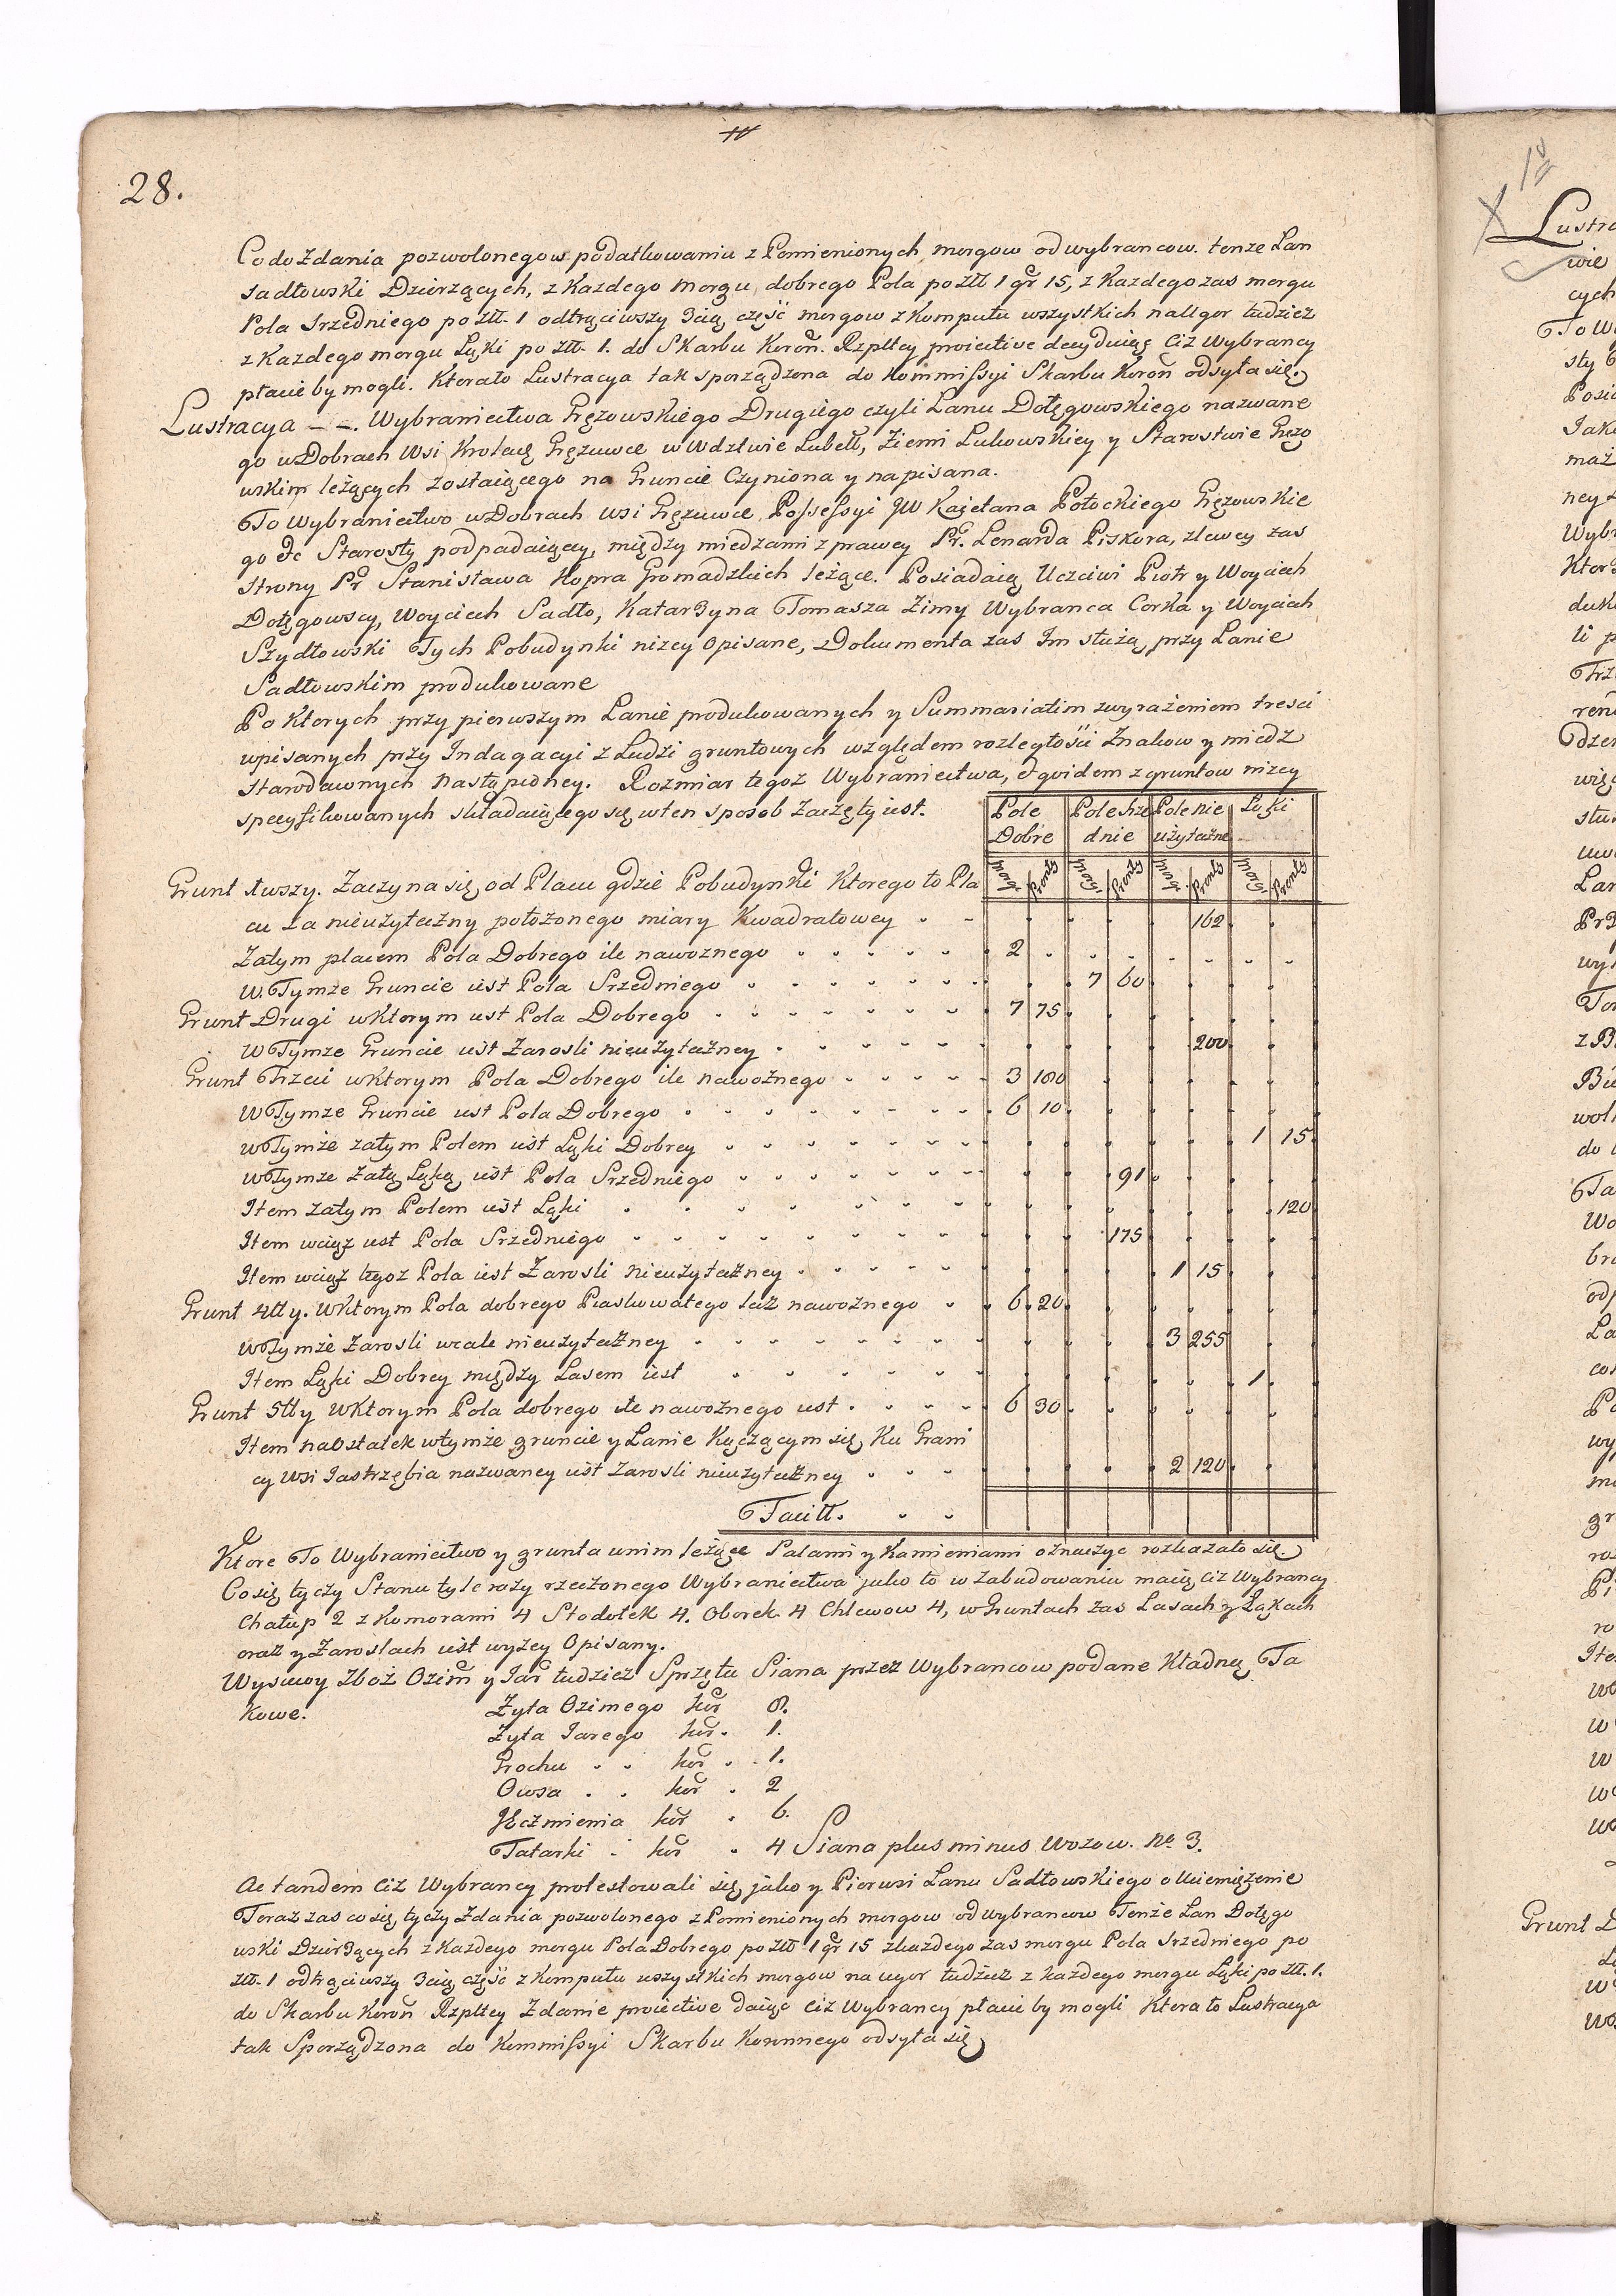 28.
Co do Zdania pozwolonego w podatkowaniu z Pomienionych morgow od wybrancow tenze Lan
Sadłowski Dzierzących, z Kazdego Morgu dobrego Pola po Złł 1 gr 15, z Kazdego zas morgu
Pola Srzedniego po Złł. 1 odtrąciwszy 3cią część morgow z Komputu wszystkich na Ugor tudziez
z Kazdego morgu Łąki po Złł. 1. do Skarbu Koron. Rzpltey proiective decyduiąc Ciz Wybrancy
płacic by mogli. Ktorato Lustracya tak sporządzona do Kommissyi Skarbu Koron odsyła się.
Lustracya - -. Wybraniectwa Gręzowskiego Drugiego czyli Lanu Dołęgowskiego nazwane
go w Dobrach Wsi Krolew Gręzuwce w Wdztwie Lubell, Ziemi Lukowskiey y Starostwie Gręzo
wskim leżących zostaiącego na Gruncie Czyniona y napisana.
To wybraniectwo w Dobrach wsi Gręzuwce Possessyi JW Kajetana Potockiego Gręzowskie
go &c Starosty podpadaiący, między miedzami z prawey Pr. Lenarda Piskora, z lewey zas
strony Pr Stanisława Kopra Gromadzkich leżące. Posiadaią Uczciwi Piotr y Woyciech
Dołęgowscy, Woyciech Sadło, Katarzyna Tomasza Zimy Wybranca Corka y Woyciech
Szydłowski Tych Pobudynki nizey opisane, Dokumenta zas Im służą przy Lanie
Sadłowskim produkowane
Po Ktorych przy pierwszym Lanie produkowanych y Summariatim z wyrażeniem tresci
wpisanych przy Indagacyi z Ludzi gruntowych względem rozległości Znakow y miedz
starodawnych następioney. Rozmiar tegoz Wybraniectwa, & quidem z gruntow nizey
specyfikowanych składaiącego się w ten sposob Zaczęty iest.
Pole Dobre | Pole Srzednie | Pole nie użyteczne | Łąki
Morgi | Pręty | Morgi | Pręty | Morgi | Pręty | Morgi | Pręty
Grunt 1wszy. Zaczyna się od Placu gdzie Pobudynki Ktorego to Pla
cu za nieużyteczny położonego miary Kwadratowey . - 162
Zatym placem Pola Dobrego ile nawoznego . . . . . 2
W Tymze Gruncie iest Pola Srzedniego . . . . . . 7 60
Grunt Drugi w Ktorym iest Pola Dobrego . . . . . . 7 75
W Tymze Gruncie iest Zarosli nieużyteczney . . . . . 200
Grunt Trzeci w Ktorym Pola Dobrego ile nawoznego . . . . 3 100
W Tymze Gruncie iest Pola Dobrego . . . . . . . 6 10
w Tymże zatym Polem iest Łąki Dobrey . . . . . . 1 15
w Tymze Zatą Łąką iest Pola Srzedniego . . . . . . 91
Item zatym Polem iest Łąki . . . . . . . 120
Item wciąz iest Pola Srzedniego . . . . . . . 175
Item wciąż tegoz Pola iest Zarosli nieuzyteczney . . . . 1 15
Grunt 4ty. w Ktorym Pola dobrego Piaskowatego też nawożnego . 6 20
w Tymże Zarosli wcale nieużyteczney . . . . . . . 3 255
Item Łąki Dobrey między Lasem iest . . . . . . 1
Grunt 5ty w Ktorym Pola dobrego ile nawożnego iest . . . . 6 30
Item na Ostatek w tymże gruncie y Lanie Kączącym się Ku Grani
cy wsi Jastrzębia nazwaney iest Zarosli nieużyteczney . . . 2 120
Facitt. . .
Ktore To Wybraniectwo y grunta w nim leżące Palami y Kamieniami oznaczyc rozkazało się.
Co się tyczy Stanu tyle razy rzeczonego Wybraniectwa jako to w Zabudowaniu maią ciz Wybrancy
Chałup 2 z Komorami 4 Stodołek 4. Oborek 4 Chlewow 4, w Gruntach zas Lasach y Łąkach
oraz y Zaroslach iest wyżey Opisany.
Wysiewy Zboż Ozim y Jar tudziez Sprzętu Siana przez Wybrancow podane Kładną Ta
Kowe. Żyta Ozimego kor 8.
Żyta Jarego kor. 1.
Grochu . . kor . . 1.
Owsa . . kor . 2
Jęczmienia kor . 6.
Tatarki . kor . 4 Siana plus minus Wozow. No. 3.
Ac tandem ciż Wybrancy protestowali się jako y Pierwsi Lanu Sadłowskiego o Uciemiężenie
Teraz zas co się tyczy Zdania pozwolonego z Pomienionych morgow od wybrancow Tenże Lan Dołęgo
wski Dzierżących z każdego morgu Pola Dobrego po Złł 1 gr 15 z każdego zas morgu Pola Srzedniego po
złł. 1 odtrąciwszy 3cią część z Komputu wszystkich morgow na ugor tudzież z każdego morgu Łąki po złł. 1.
do Skarbu Koron Rzpltey Zdanie proiective daiąc ciz Wybrancy płacić by mogli Ktora to Lustracya
tak Sporządzona do Kommissyi Skarbu Koronnego odsyła się